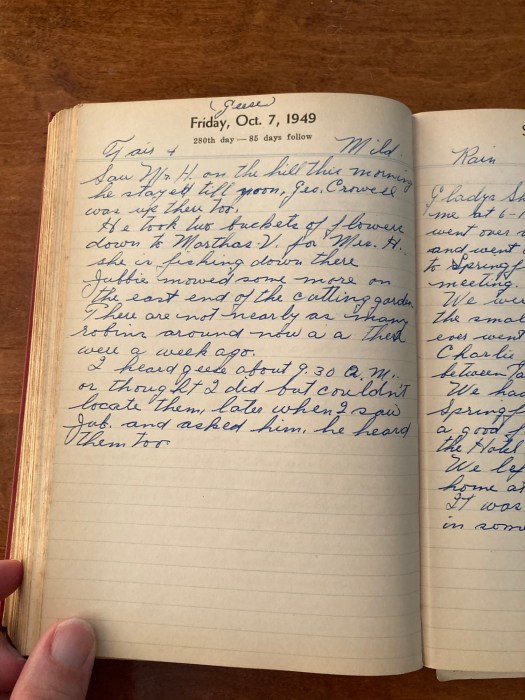 (geese)
Friday, Oct. 7, 1949
280th day — 85 days follow
Fair & Mild
Saw Mr. H. on the hill this morning
he stayed till noon, Geo. Crowell
was up there too.
He took two buckets of flowers
down to Marthas V. for Mrs. H.
she is fishing down there
Jubbie mowed some more on
the east end of the cutting garden.
There are not nearly as many
robins around now a a there
were a week ago.
I heard geese about 9:30 A.M.
or thought I did but couldn't
locate them, later when I saw
Jub. and asked him, he heard
them too
S
Rain
Gladys
me at 6-
went over
and went
to Springf
meeting.
We were
the smal
ever went
Charlie
between
We had
Springf
a good
the Hotel
We lef
home at
It was
in som